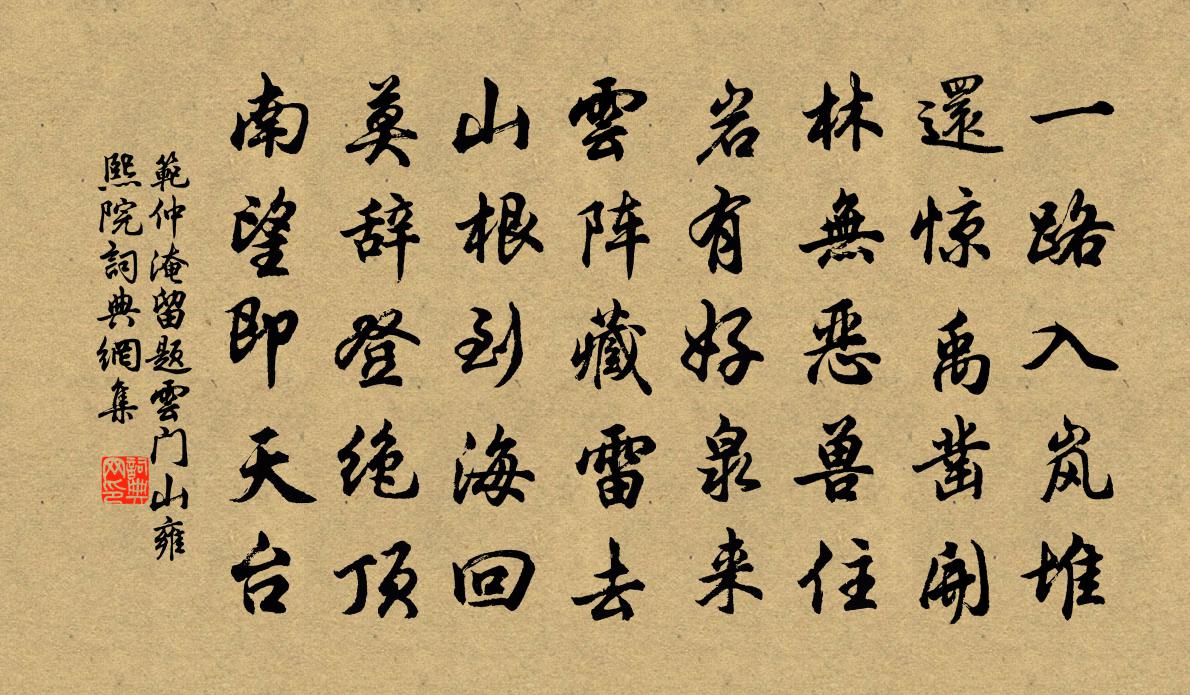 一路入岚堆
還惊禹凿開
林無恶兽住
岩有好泉来
雲阵藏雷去
山根到海回
莫辞登绝顶
南望即天台
範仲淹留题雲门山雍
熙院詞典網集
詞典
网印